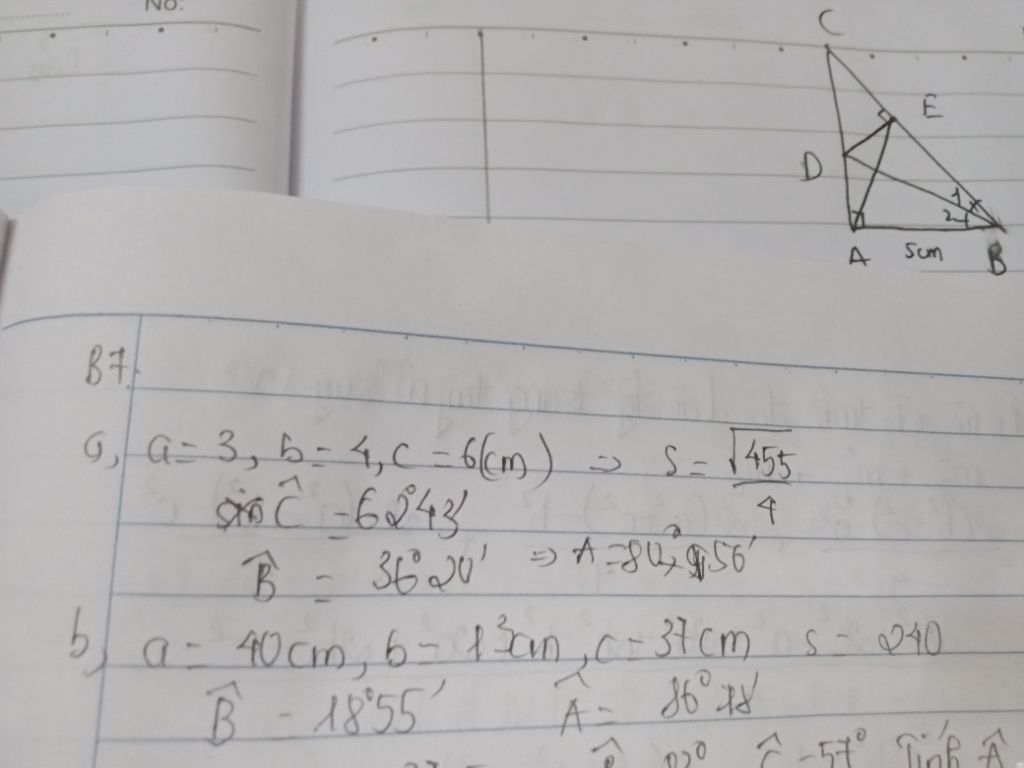 No:
C
E
D
1
2
A 5cm B
B7.
a, a = 3, b = 4, c = 6(cm) => S = √455/4
Ĉ = 62°43'
B̂ = 36°20' =>
b, a = 40cm, b = 13cm, c = 37cm S = 240
B̂ = 18°55' Â =
Ĉ = 57° Tính Â